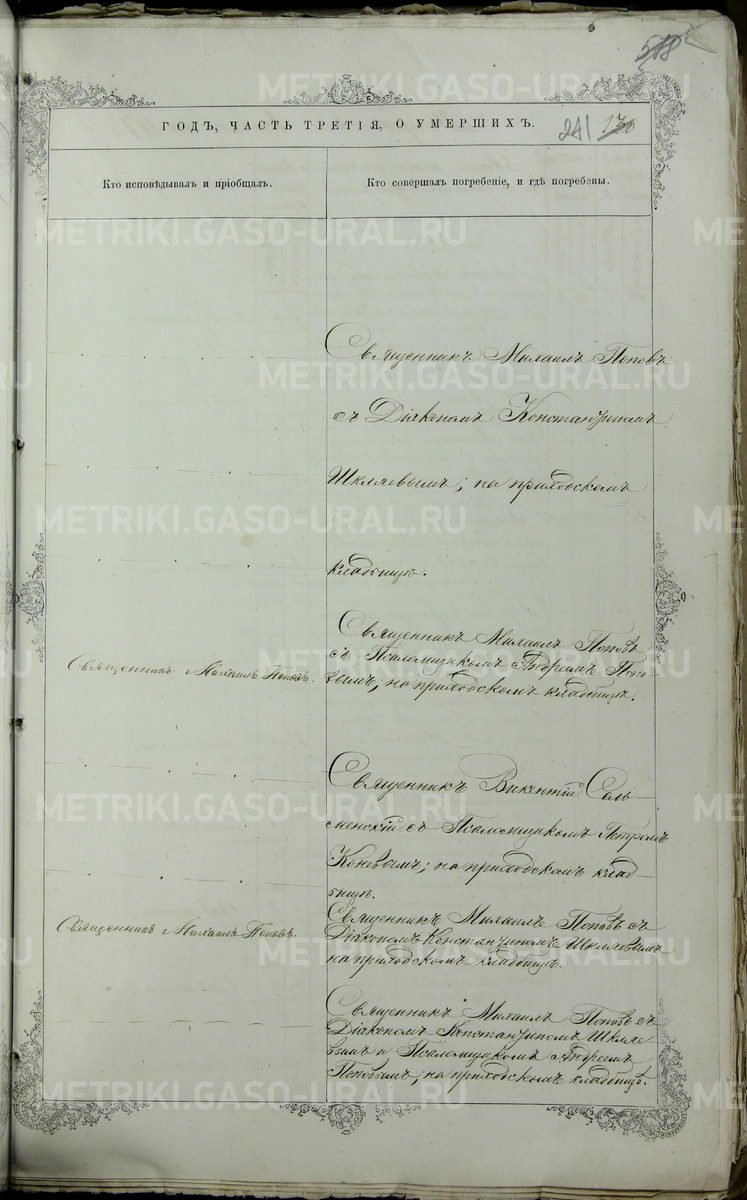 518
ГОДЪ, ЧАСТЬ ТРЕТІЯ, О УМЕРШИХЪ.
241 130
Кто исповѣдывалъ и пріобщалъ.
Кто совершалъ погребеніе, и гдѣ погребены.
Священникъ Михаилъ Поповъ
съ Діакономъ Константиномъ
Шкляевымъ; на приходскомъ
кладбищѣ.
Священникъ Михаилъ Поповъ.
Священникъ Михаилъ Поповъ
съ Псаломщикомъ Андреемъ Попо-
вымъ; на приходскомъ кладбищѣ.
Священникъ Викентій Сель-
менскій съ Псаломщикомъ Петромъ
Коневымъ; на приходскомъ клад-
бищѣ.
Священникъ Михаилъ Поповъ.
Священникъ Михаилъ Поповъ съ
Діакономъ Константиномъ Шкляевымъ
на приходскомъ кладбищѣ.
Священникъ Михаилъ Поповъ съ
Діакономъ Константиномъ Шкляе-
вымъ и Псаломщикомъ Андреемъ
Поповымъ; на приходскомъ кладбищѣ.
METRIKI.GASO-URAL.RU